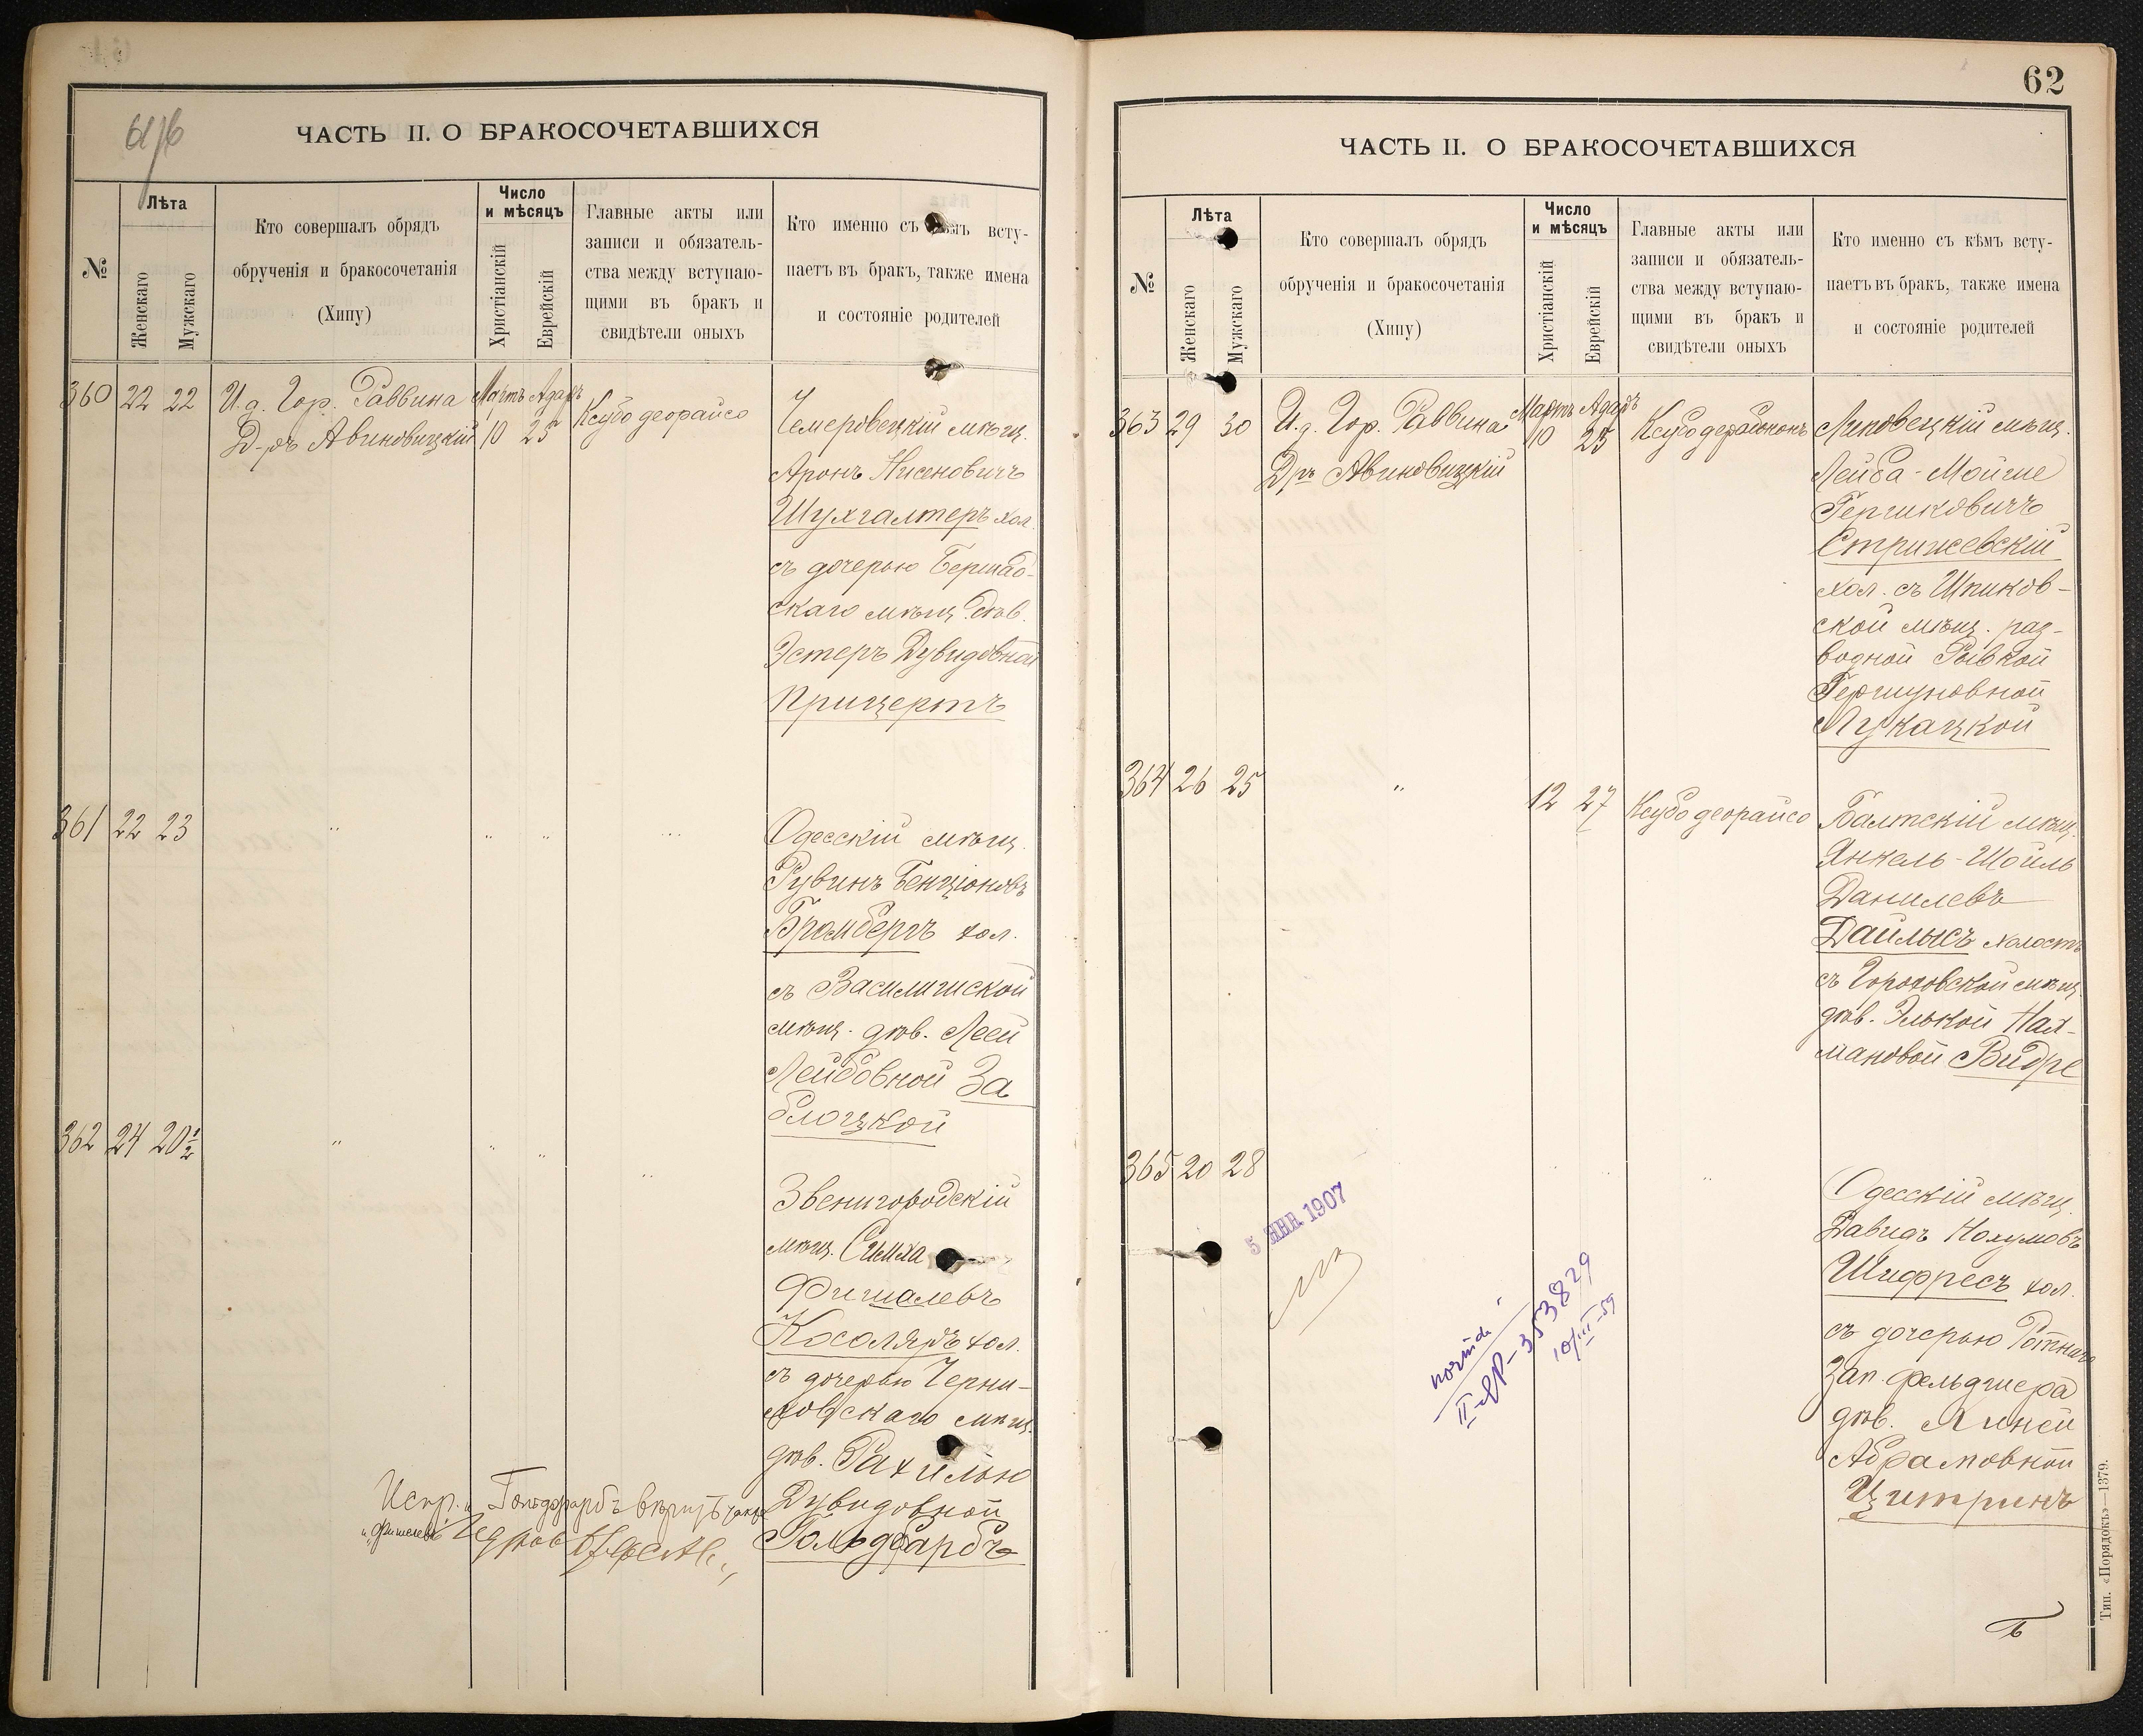 61/б
ЧАСТЬ II. О БРАКОСОЧЕТАВШИХСЯ
№
Лѣта
Женскаго
Мужскаго
Кто совершалъ обрядъ
обрученія и бракосочетанія
(Хипу)
Число
и мѣсяцъ
Христіанскій
Еврейскій
Главные акты или
записи и обязатель-
ства между вступаю-
щими въ бракъ и
свидѣтели оныхъ
Кто именно съ кѣмъ всту-
паетъ въ бракъ, также имена
и состояніе родителей
360 22 22 И.д. Гор. Раввина Мартъ Адаръ
Д-ръ Авиновицкій 10 25
Ксубо деорайсо
Чемеровецкій мѣщ.
Аронъ Нисеновичъ
Шухгалтеръ хол.
съ дочерью Бершад-
скаго мѣщ. дѣв.
Эстеръ Дувидовной
Прицертъ
361 22 23 " " " "
Одесскій мѣщ.
Рувинъ Бенціоновъ
Бромбергъ хол.
съ Василишской
мѣщ. дѣв. Леей
Лейбовной За
блоцкой
362 24 20½ " " " "
Звенигородскій
мѣщ. Симха
Фишалевъ
Косоляръ хол.
съ дочерью Черни-
ховскаго мѣщ.
дѣв. Рахилью
Дувидовной
Гольдфарбъ
Испр. Гольдфарбъ вѣрить
и „Фишелевъ"
62
ЧАСТЬ II. О БРАКОСОЧЕТАВШИХСЯ
№
Лѣта
Женскаго
Мужскаго
Кто совершалъ обрядъ
обрученія и бракосочетанія
(Хипу)
Число
и мѣсяцъ
Христіанскій
Еврейскій
Главные акты или
записи и обязатель-
ства между вступаю-
щими въ бракъ и
свидѣтели оныхъ
Кто именно съ кѣмъ всту-
паетъ въ бракъ, также имена
и состояніе родителей
363 29 30 И.д. Гор. Раввина Мартъ Адаръ
Дръ Авиновицкій 10 25
Липовецкій мѣщ.
Лейба-Мойше
Гершковичъ
Стрижевскій
хол. съ Шпиков-
ской мѣщ. раз-
водной Ривкой
Гершуновной
Лукацкой
364 26 25 " 12 27 Ксубо деорайсо
Балтскій мѣщ.
Янкель-Шойль
Данилевъ
Дайлысъ холостъ
съ Гороховской мѣщ.
дѣв. Элькой Нах-
мановой Видре
365 20 28 "
Одесскій мѣщ.
Давидъ Нохумовъ
Шифресъ хол.
съ дочерью Ротнаго
Зап. фельдшера
дѣв. Линей
Абрамовной
Цитринъ
5 ЯНВ. 1907
353829
10/III-59
Тип. «Порядокъ»—1379.